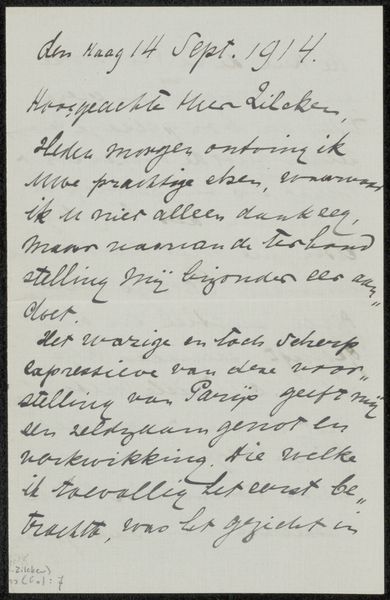 den Haag 14 Sept. 1914.
Hooggeachte Heer Zilcken,
Heden morgen ontving ik
Uwe prachtige etsen, waarvoor
ik U niet alleen dank zeg,
maar waarvan de ter hand
stelling mij bizonder eer aan„
doet.
Het wazige en toch scherp
expressieve van deze voor„
stelling van Parijs geeft mij
een zeldzaam genot en
verkwikking. Die welke
ik toevallig het eerst be„
trachtte, was het gezicht in
Zilcken)
: 7